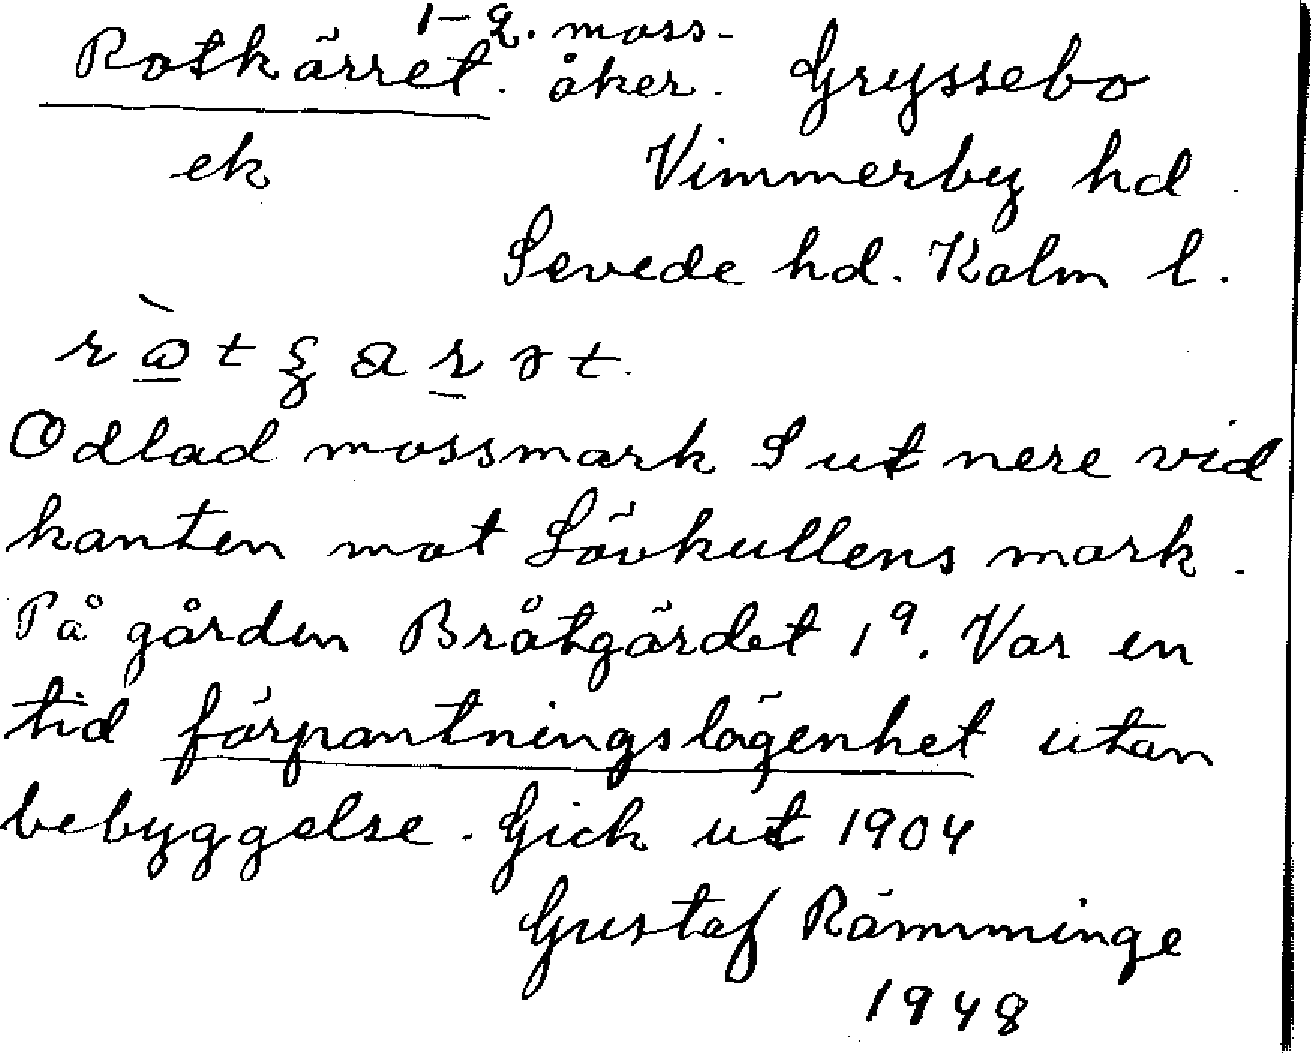 Rotkärret. 1-2. moss-
åker. Gryssebo
ek Vimmerby hd
Sevede hd. Kalm l.
Odlad mossmark S ut nere vid
kanten mot Lövkullens mark.
På gården Bråtgärdet 1⁹. Var en
tid förpantningslägenhet utan
bebyggelse. Gick ut 1904
Gustaf Rämminge
1948